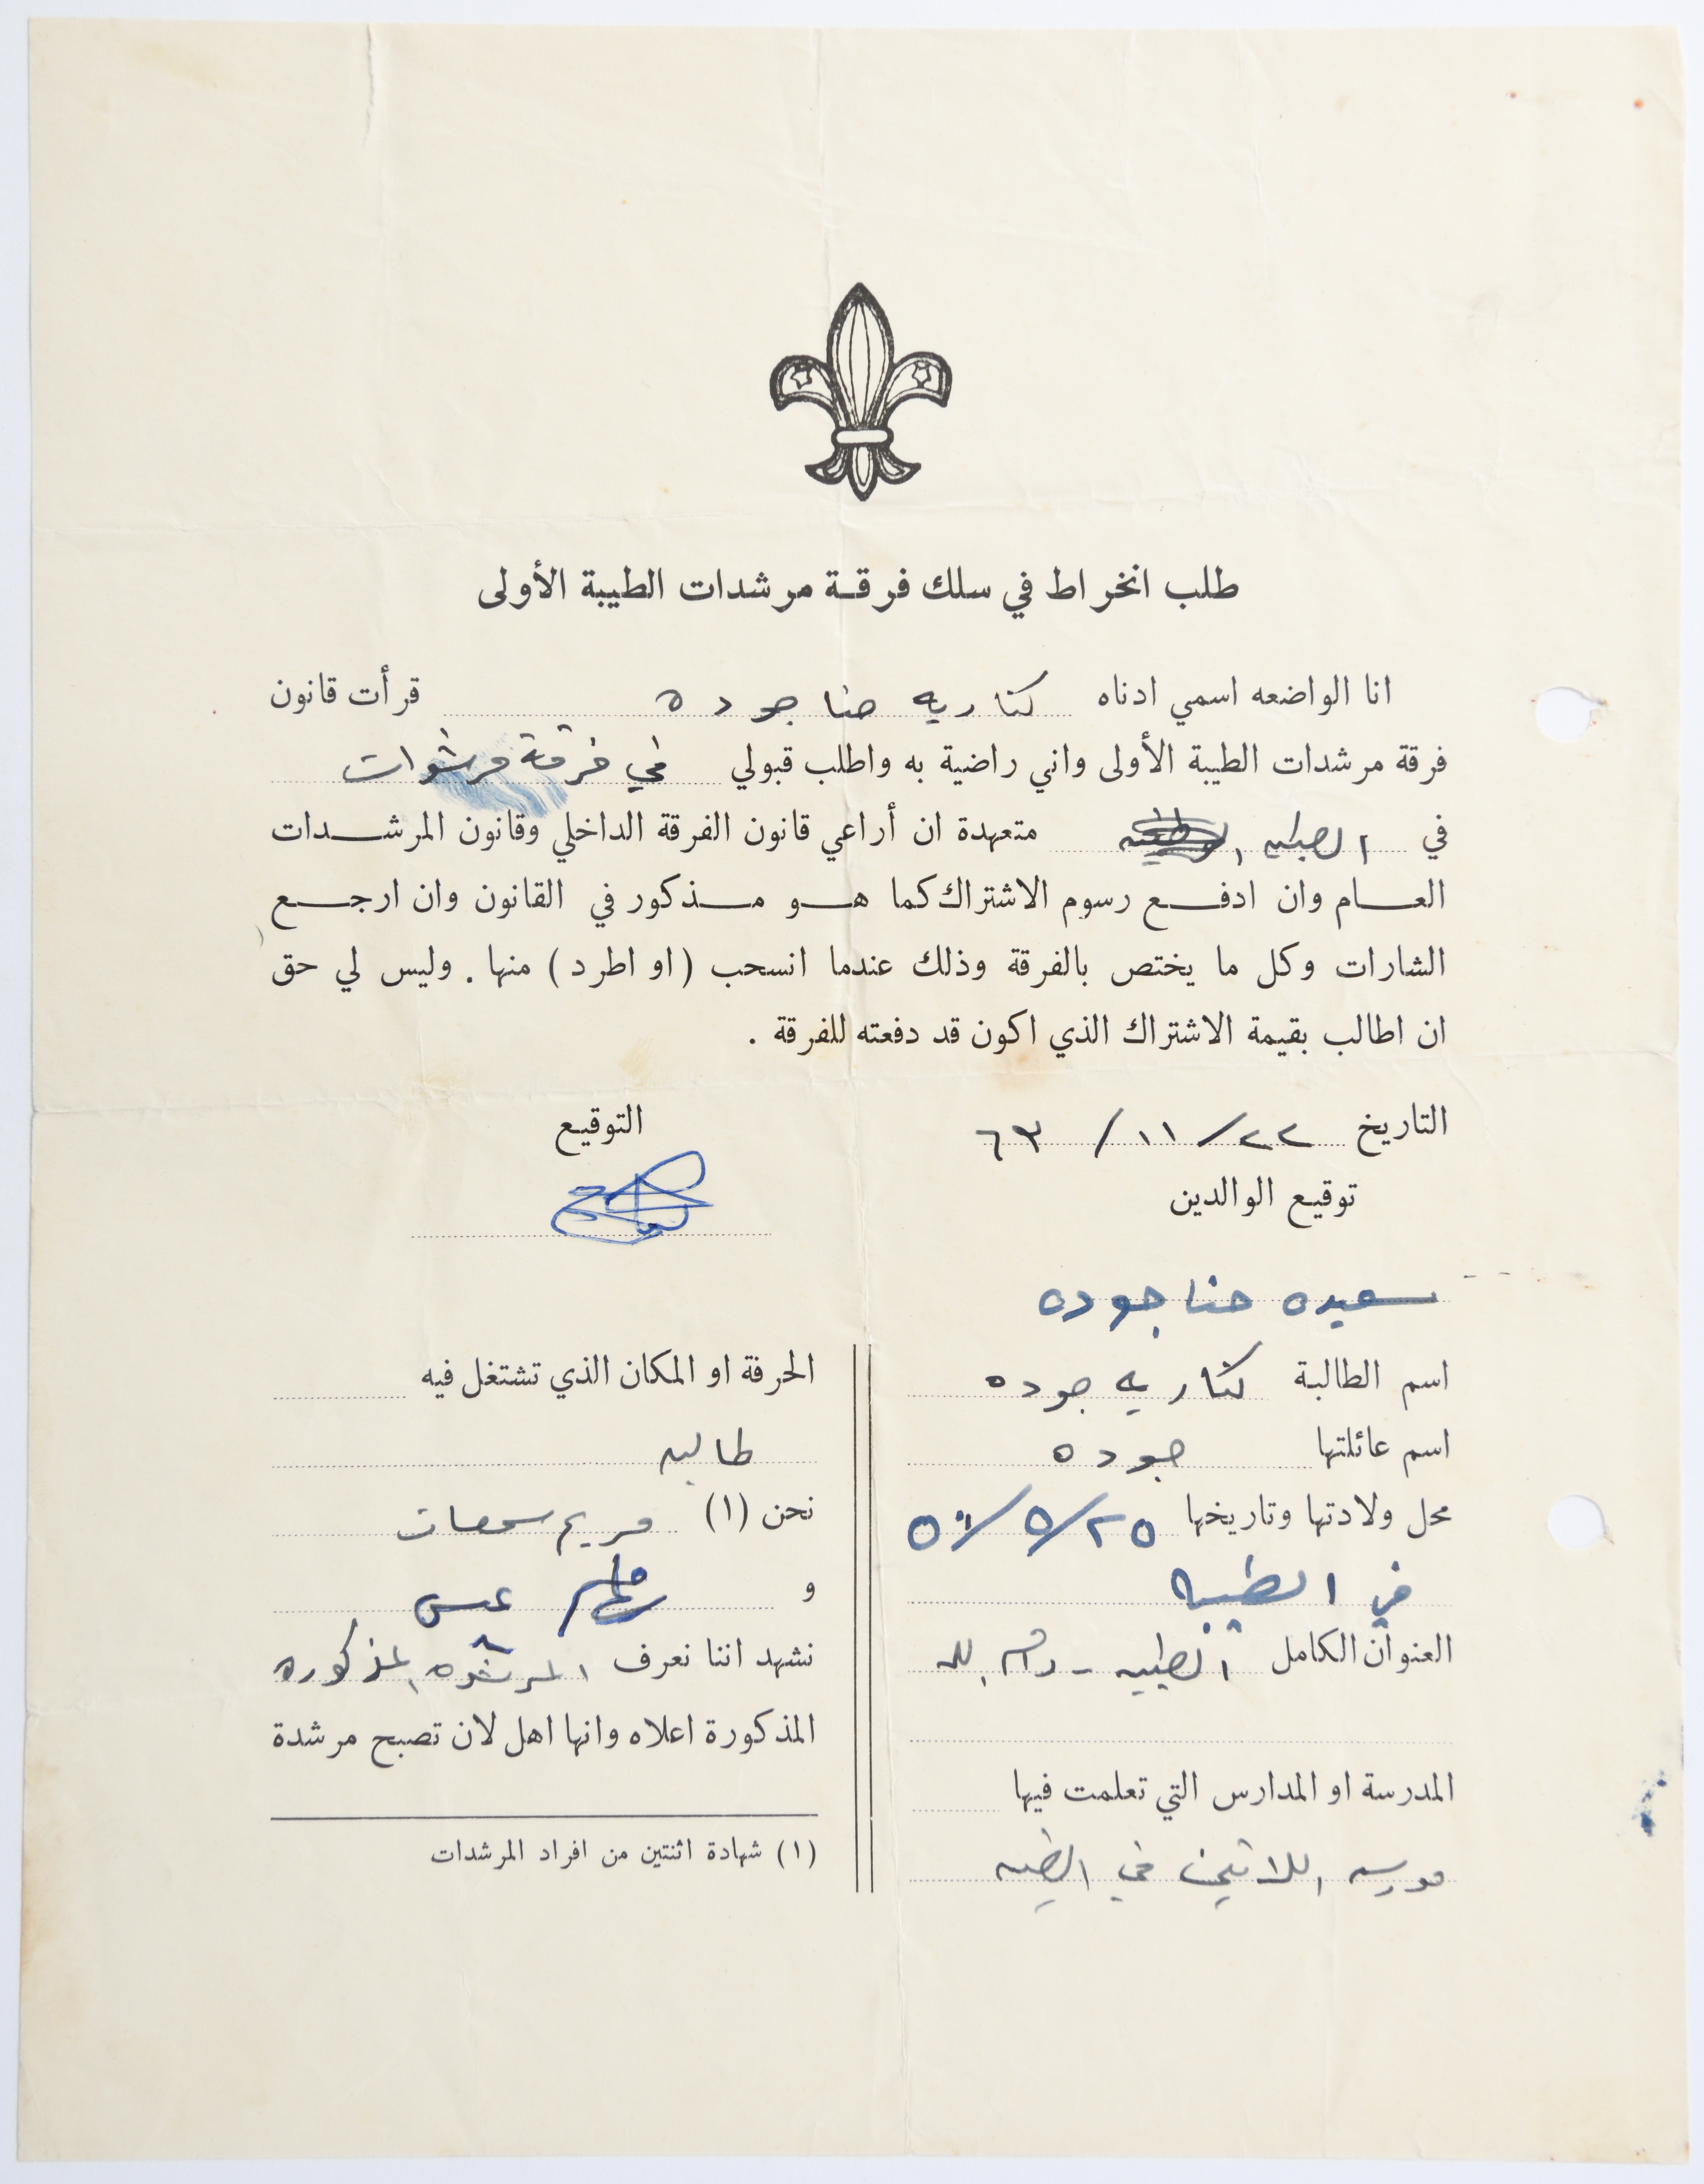 طلب انخراط في سلك فرقة مرشدات الطيبة الأولى
انا الواضعه اسمي ادناه كناريه حنا جوده قرأت قانون
فرقة مرشدات الطيبة الأولى واني راضية به واطلب قبولي في فرقة مرشدات
في الطيبه متعهدة ان أراعي قانون الفرقة الداخلي وقانون المرشدات
العام وان ادفع رسوم الاشتراك كما هو مذكور في القانون وان ارجع
الشارات وكل ما يختص بالفرقة وذلك عندما انسحب (او اطرد) منها. وليس لي حق
ان اطالب بقيمة الاشتراك الذي اكون قد دفعته للفرقة.
التاريخ ٢٢/ ١١/ ٦٣
التوقيع
توقيع الوالدين
سعيده حنا جوده
اسم الطالبة كناريه جوده
اسم عائلتها جوده
محل ولادتها وتاريخها ٢٥/٥/
في الطيبه
العنوان الكامل الطيبه - رام الله
المدرسة او المدارس التي تعلمت فيها
مدرسه اللاتين في الطيبه
الحرفة او المكان الذي تشتغل فيه
طالبه
نحن (١) مريم
و
نشهد اننا نعرف المرشده المذكوره
المذكورة اعلاه وانها اهل لان تصبح مرشدة
(١) شهادة اثنتين من افراد المرشدات